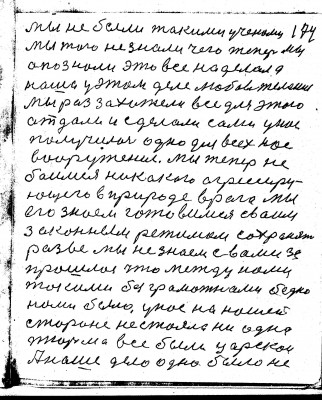 мы не были такими учеными 174
мы того не знали чего теперь мы
опознали это все наделала
наша у этом деле любов желания
мы раз захотели все для этого
отдали и сделали сами у нас
получилося одно для всех нас
вооружения. мы тепер не
боимся никакого агресиру-
ющего в природе врага мы
его знаем готовимся своим
законным режимом сохранят
разве мы не знаем с вами за
прошлое что между нами
такими безграмотными бедно
нами было, у нас на нашей
стороне не стояла ни одна
тюрма все были царской
А наше дело одно было не